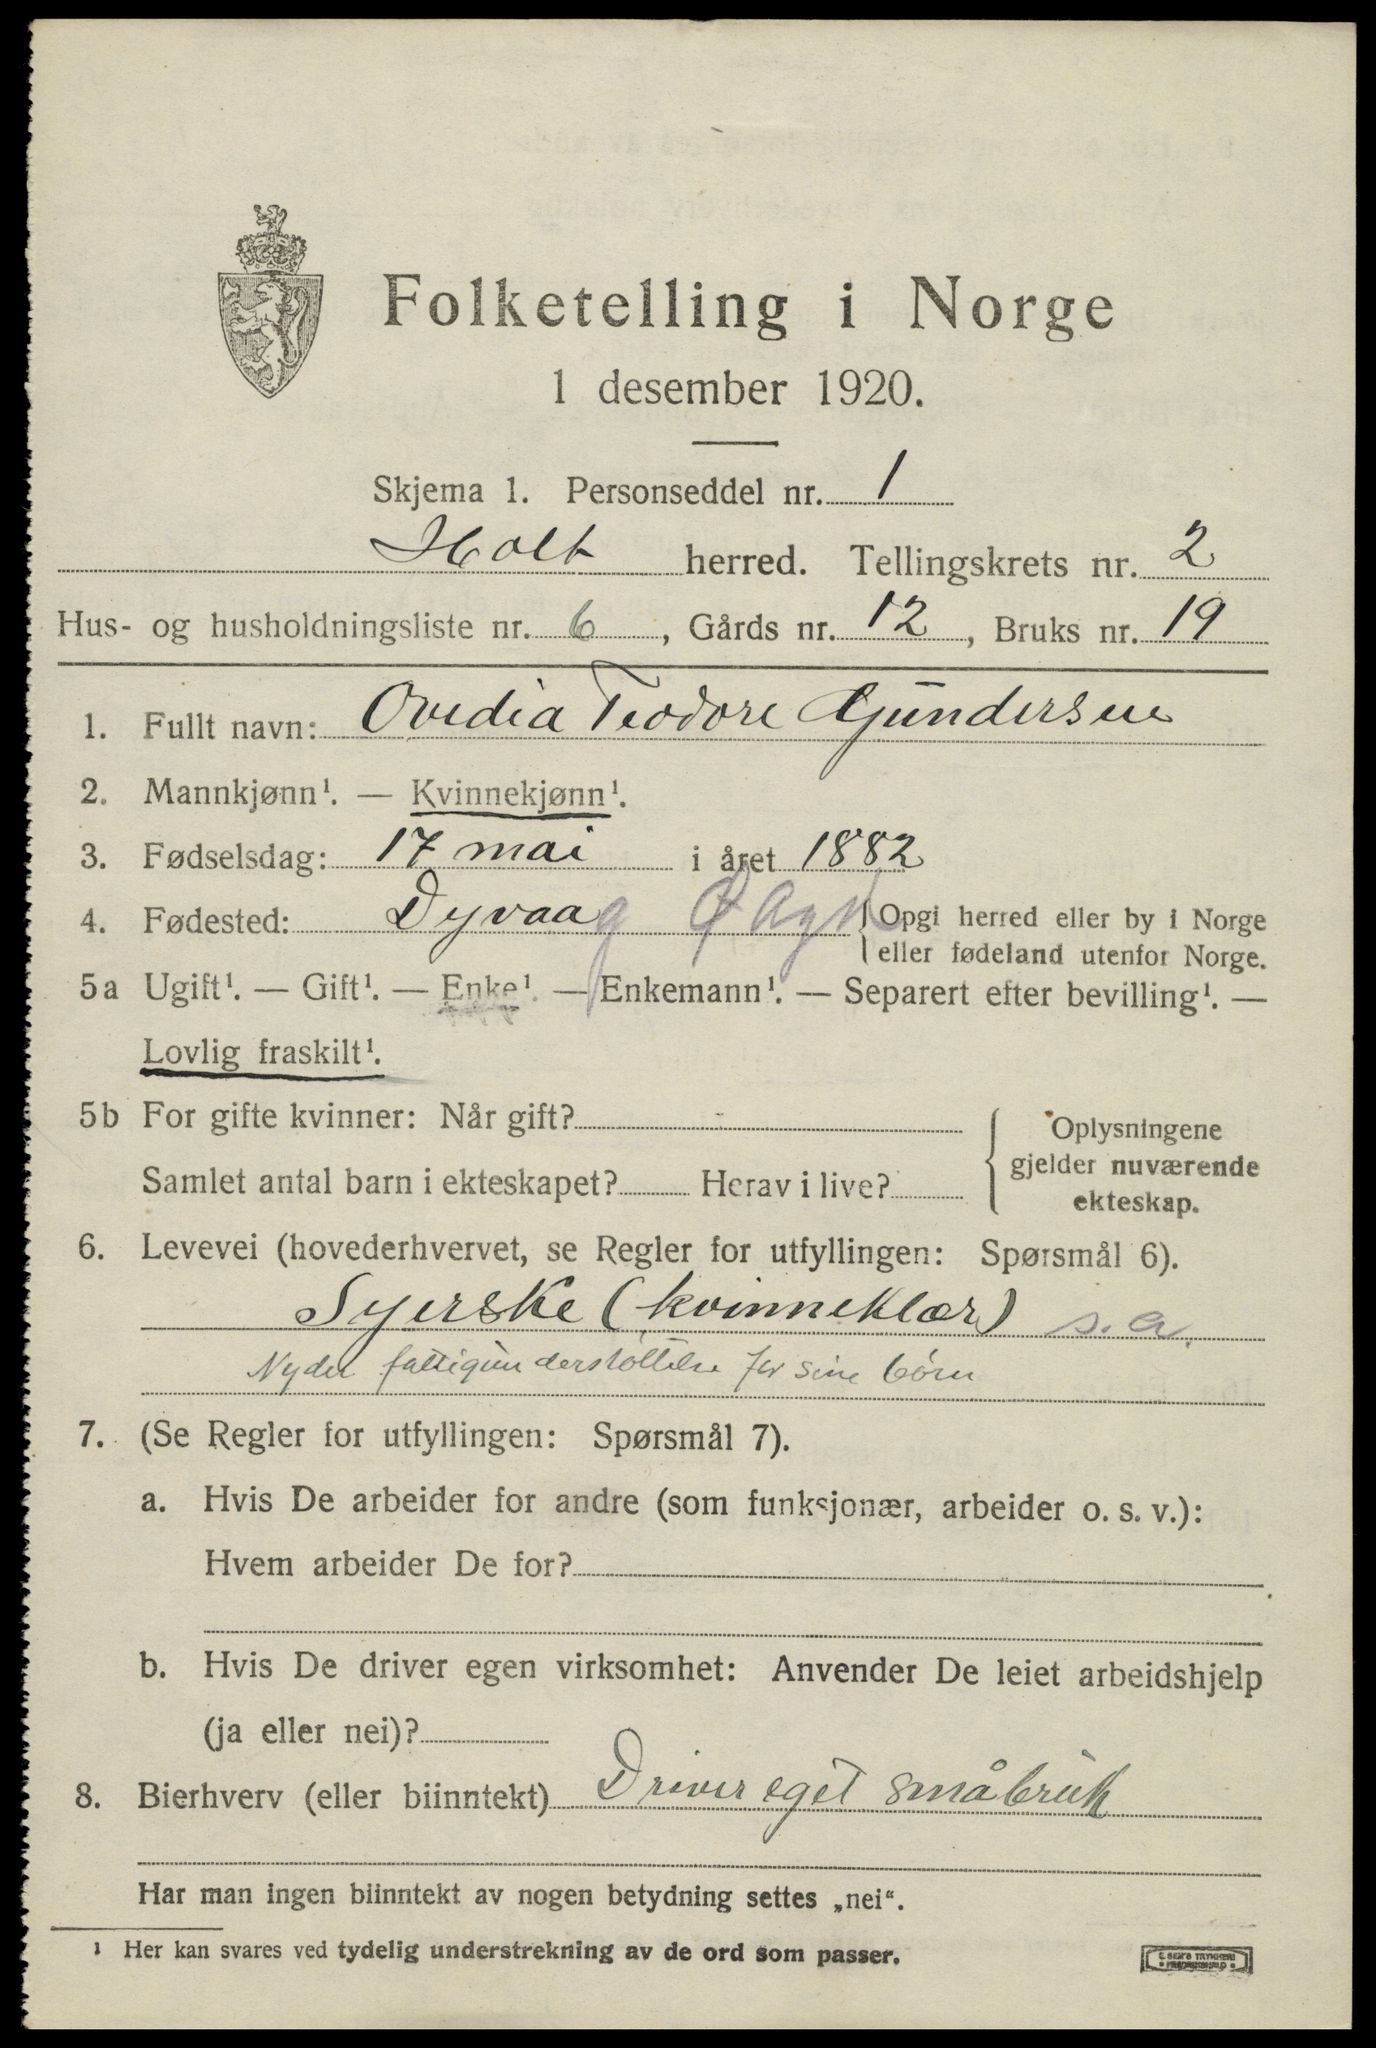 Folketelling i Norge
1 desember 1920.
Skjema 1. Personseddel nr. 1
Holt herred. Tellingskrets nr. 2
Hus- og husholdningsliste nr. 6, Gårds nr. 12, Bruks nr. 19
1. Fullt navn: Ovedia Teodore Gundersen
2. Mannkjønn¹. — Kvinnekjønn¹.
3. Fødselsdag: 17 mai i året 1882
4. Fødested: Dyvaag Ø Agd { Opgi herred eller by i Norge
eller fødeland utenfor Norge.
5a Ugift¹. — Gift¹. — Enke¹. — Enkemann¹. — Separert efter bevilling¹. —
Lovlig fraskilt¹.
5b For gifte kvinner: Når gift?
Samlet antal barn i ekteskapet? Herav i live?
{ Oplysningene
gjelder nuværende
ekteskap.
6. Levevei (hovederhvervet, se Regler for utfyllingen: Spørsmål 6).
Syerske (kvinneklær) s. a.
Nyder fattigunderstøttelse for sine børn
7. (Se Regler for utfyllingen: Spørsmål 7).
a. Hvis De arbeider for andre (som funksjonær, arbeider o. s. v.):
Hvem arbeider De for?
b. Hvis De driver egen virksomhet: Anvender De leiet arbeidshjelp
(ja eller nei)?
8. Bierhverv (eller biinntekt) Driver eget småbruk
Har man ingen biinntekt av nogen betydning settes „nei“.
¹ Her kan svares ved tydelig understrekning av de ord som passer.
E. SEM'S TRYKKERI
• FREDRIKSHALD •